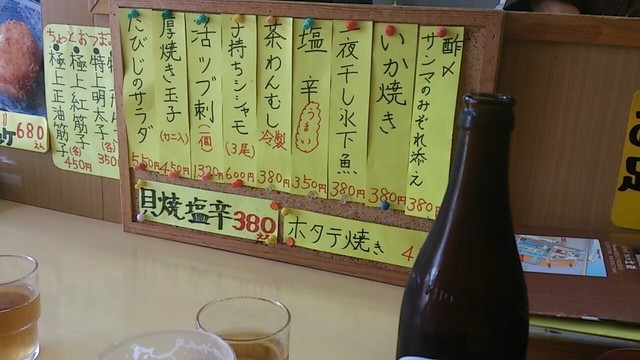 酢〆
サンマのみぞれ添え
380円
いか焼き
380円
一夜干し氷下魚
380円
塩辛
うまい
350円
茶わんむし
冷製
380円
子持ちシシャモ
(3尾)
600円
活ツブ刺
(一個)
1320円
厚焼き玉子
(カニ入)
450円
たびじのサラダ
550円
貝焼塩辛380
ホタテ焼き 4
ちょっとおつま
特上明太子
(各)
350
極上紅筋子
極上正油筋子
(各)
450円
680
えん